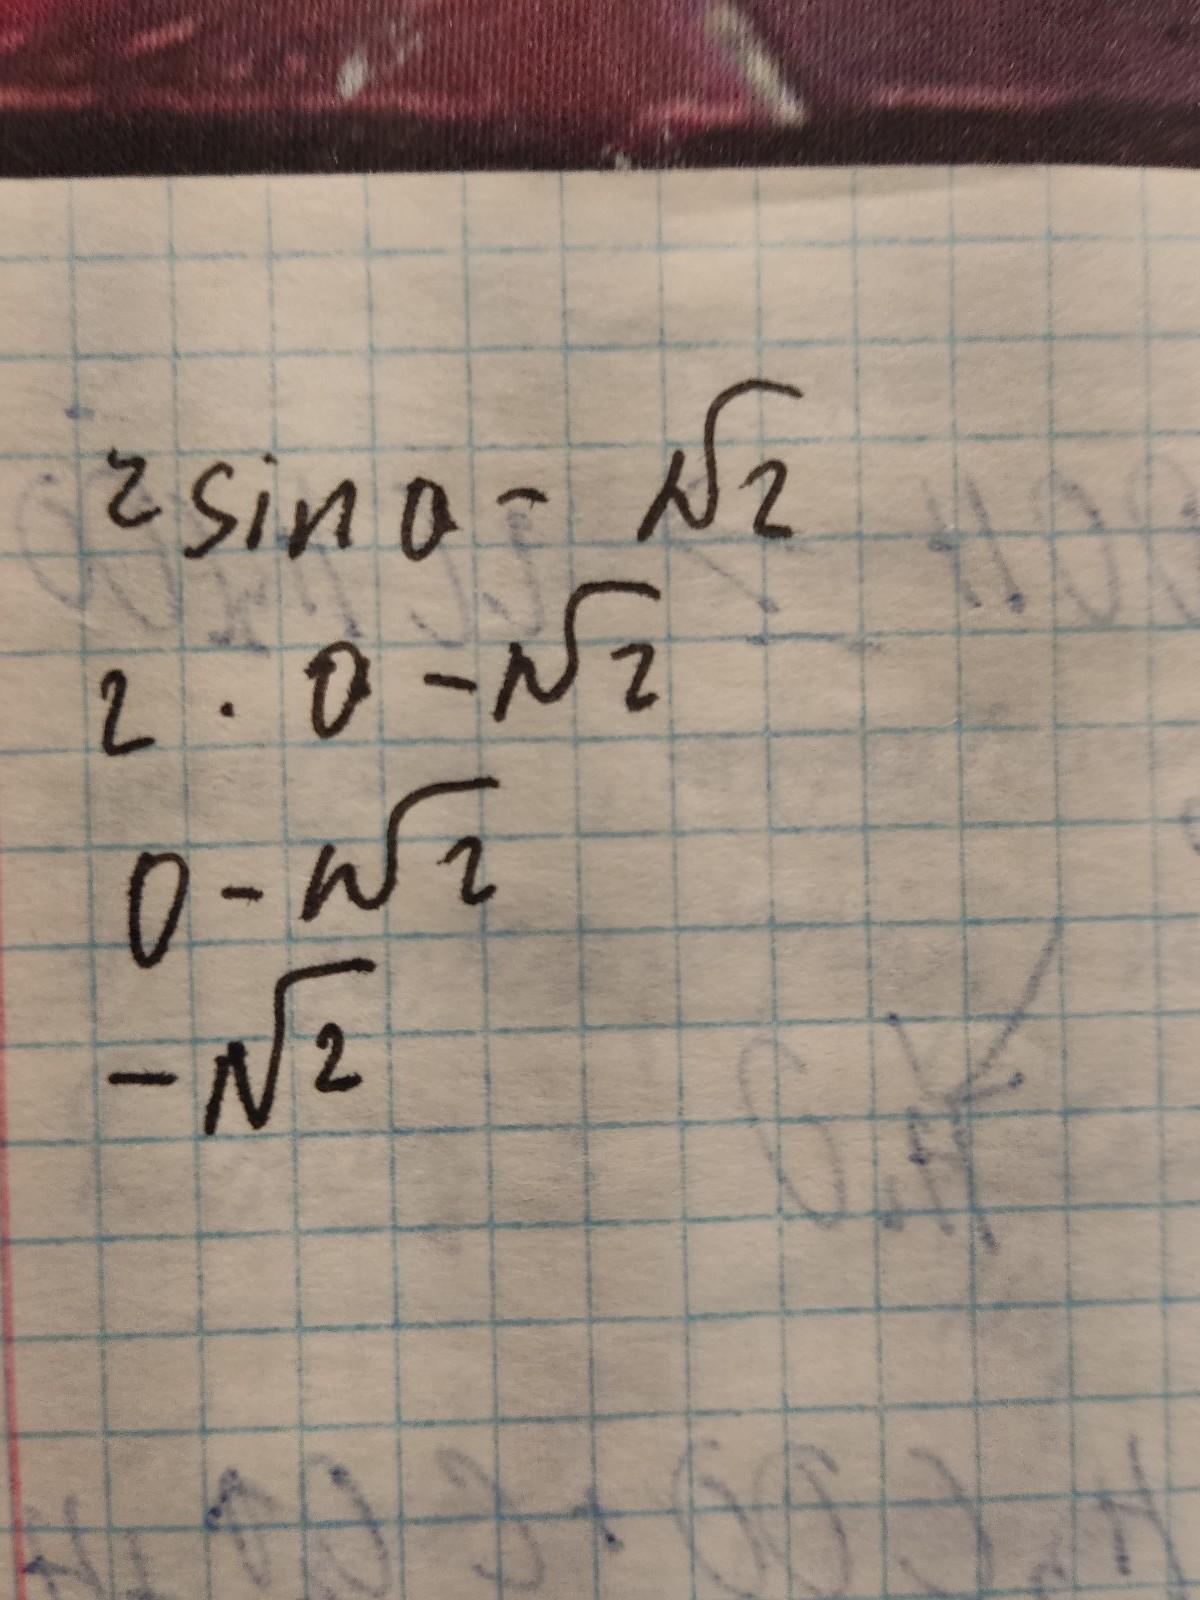 2 sin 0 - √2
2 · 0 - √2
0 - √2
- √2